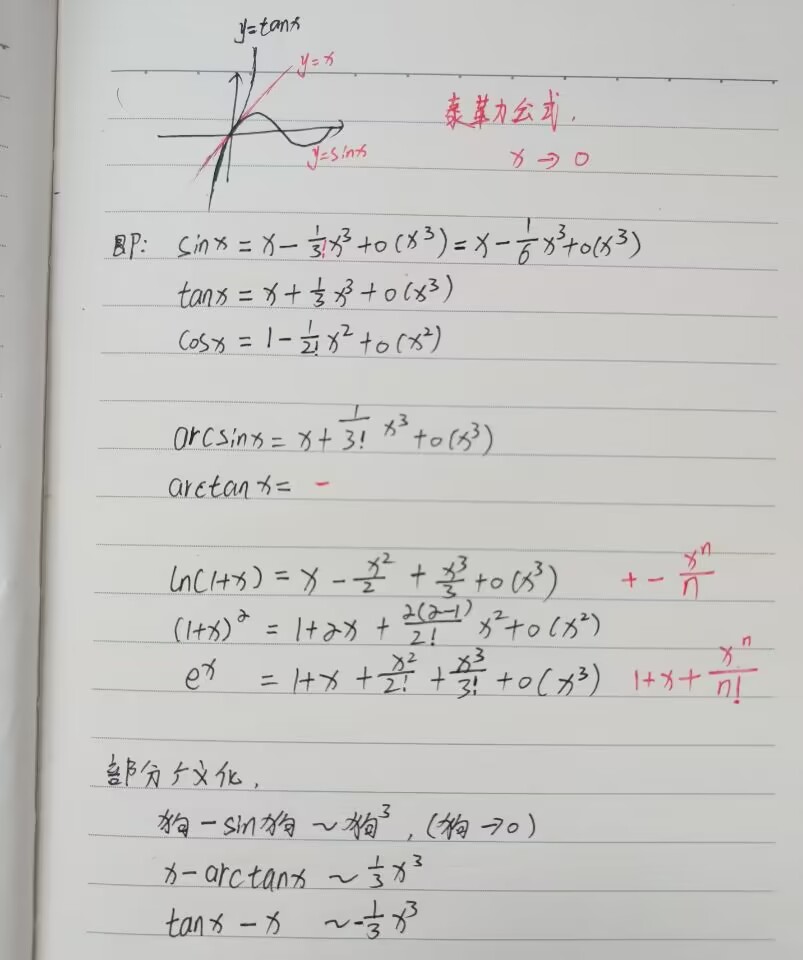 y=tanx
y=x
y=sinx
泰革力公式.
x→0
即: sinx = x - 1/3! x³ + o(x³) = x - 1/6 x³ + o(x³)
tanx = x + 1/3 x³ + o(x³)
cosx = 1 - 1/2! x² + o(x²)
arcsinx = x + 1/3! x³ + o(x³)
arctanx = -
ln(1+x) = x - x²/2 + x³/3 + o(x³) + - xⁿ/n
(1+x)² = 1+2x + 2(2-1)/2! x² + o(x²)
eˣ = 1+x + x²/2! + x³/3! + o(x³) 1+x+ xⁿ/n!
部分个文化,
狗 - sin狗 ~ 狗³, (狗→0)
x - arctanx ~ 1/3 x³
tanx - x ~ -1/3 x³